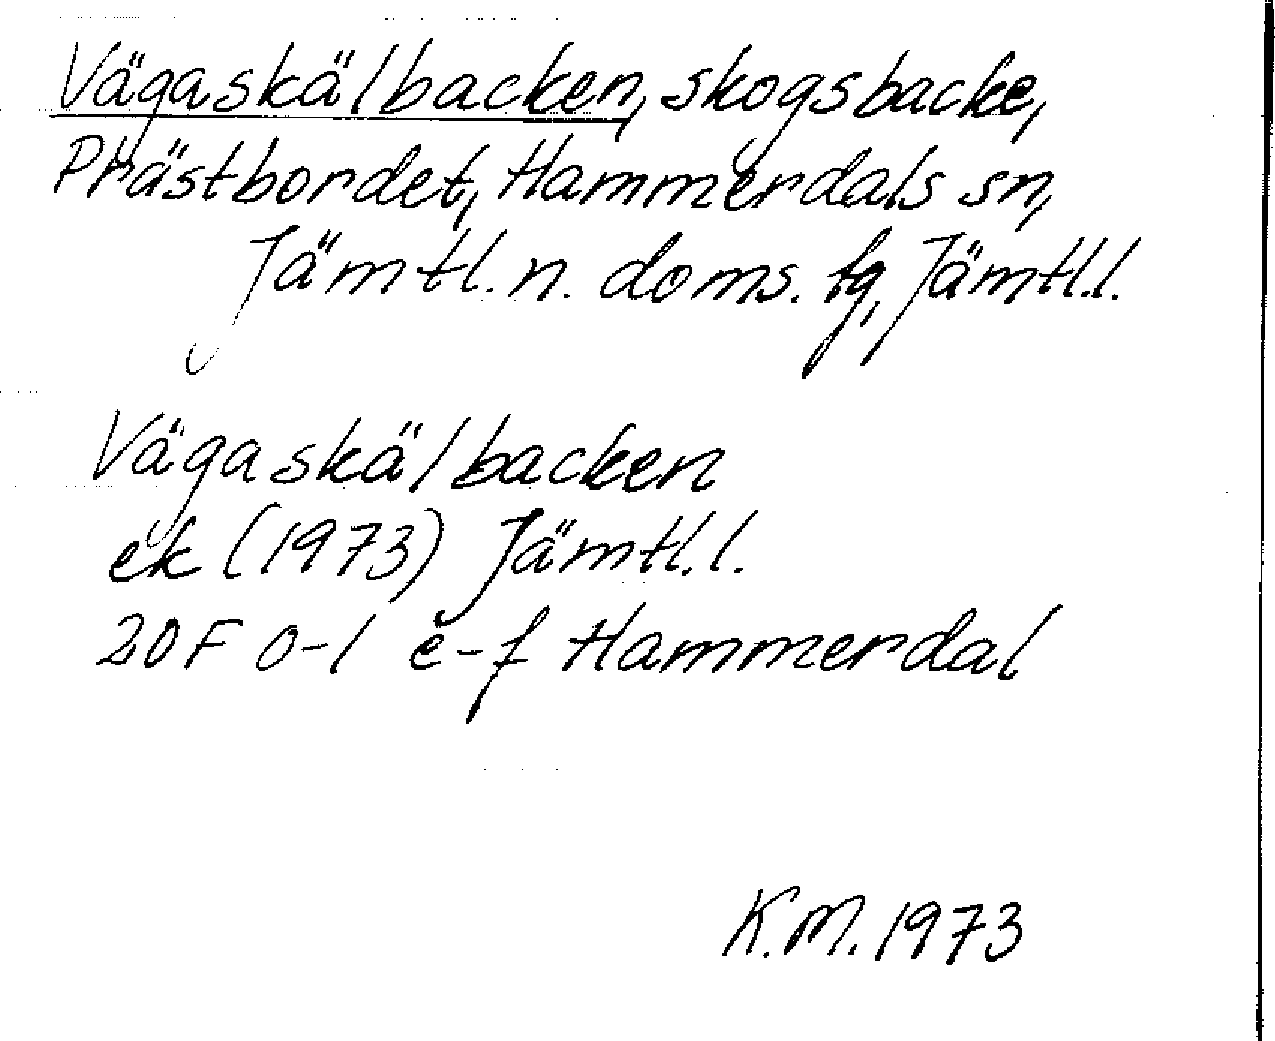 Vägaskälbacken, skogsbacke,
Prästbordet, Hammerdals sn,
Jämtl. n. doms. tg, Jämtl.l.
Vägaskälbacken
ek (1973) Jämtl.l.
20F 0-1 e-f Hammerdal
K.M. 1973